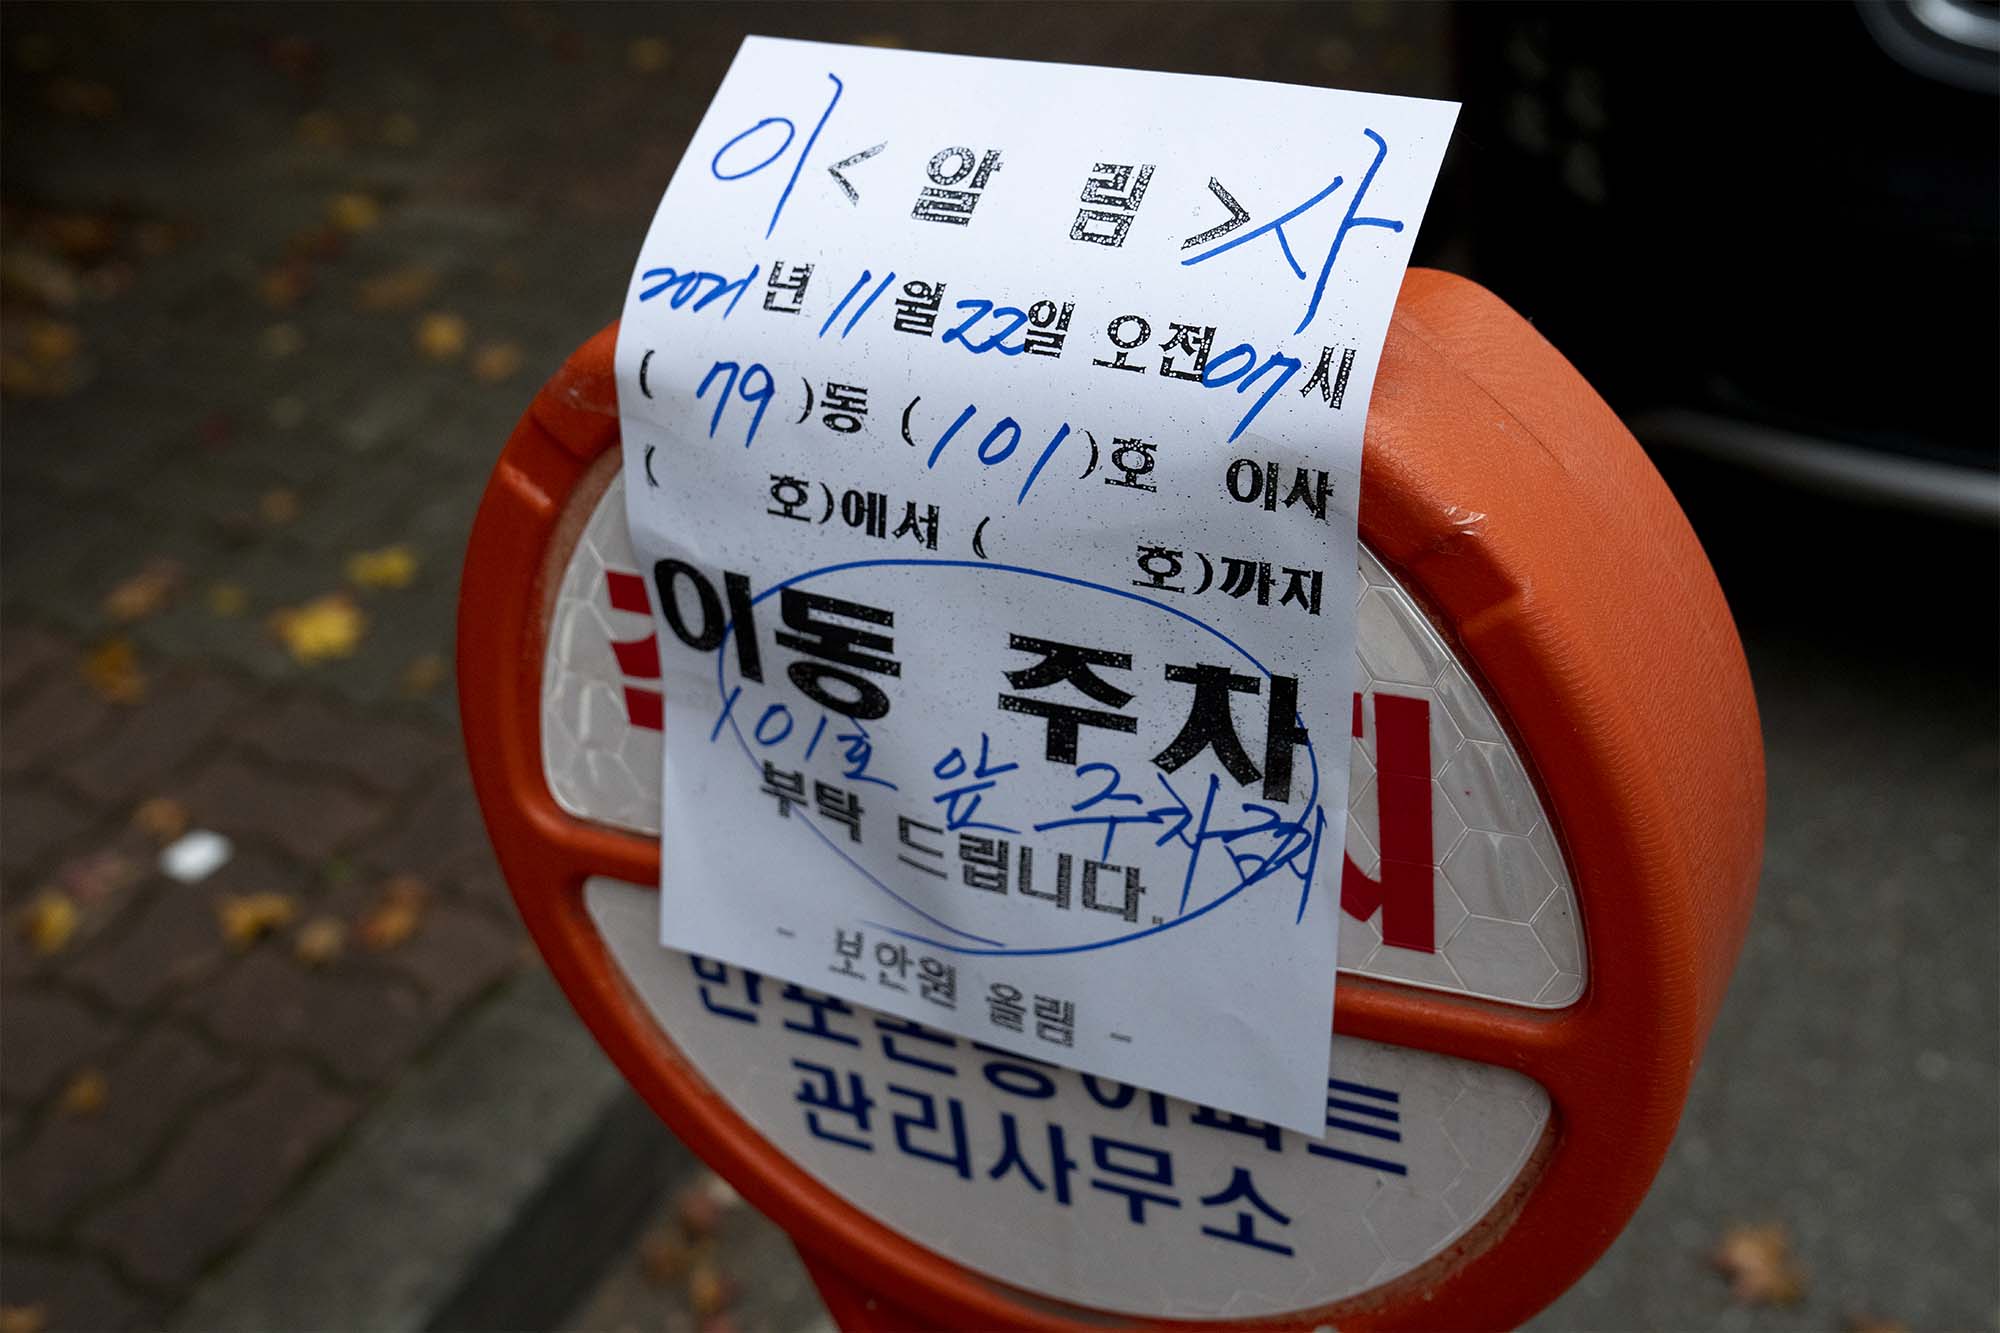 이 < 알 림 > 사
2021년 11월 22일 오전 07시
( 79 )동 ( 101 )호 이사
( 호)에서 ( 호)까지
이동 주차
101호 앞 주차금지
부탁 드립니다.
- 보안원 올림 -
관리사무소